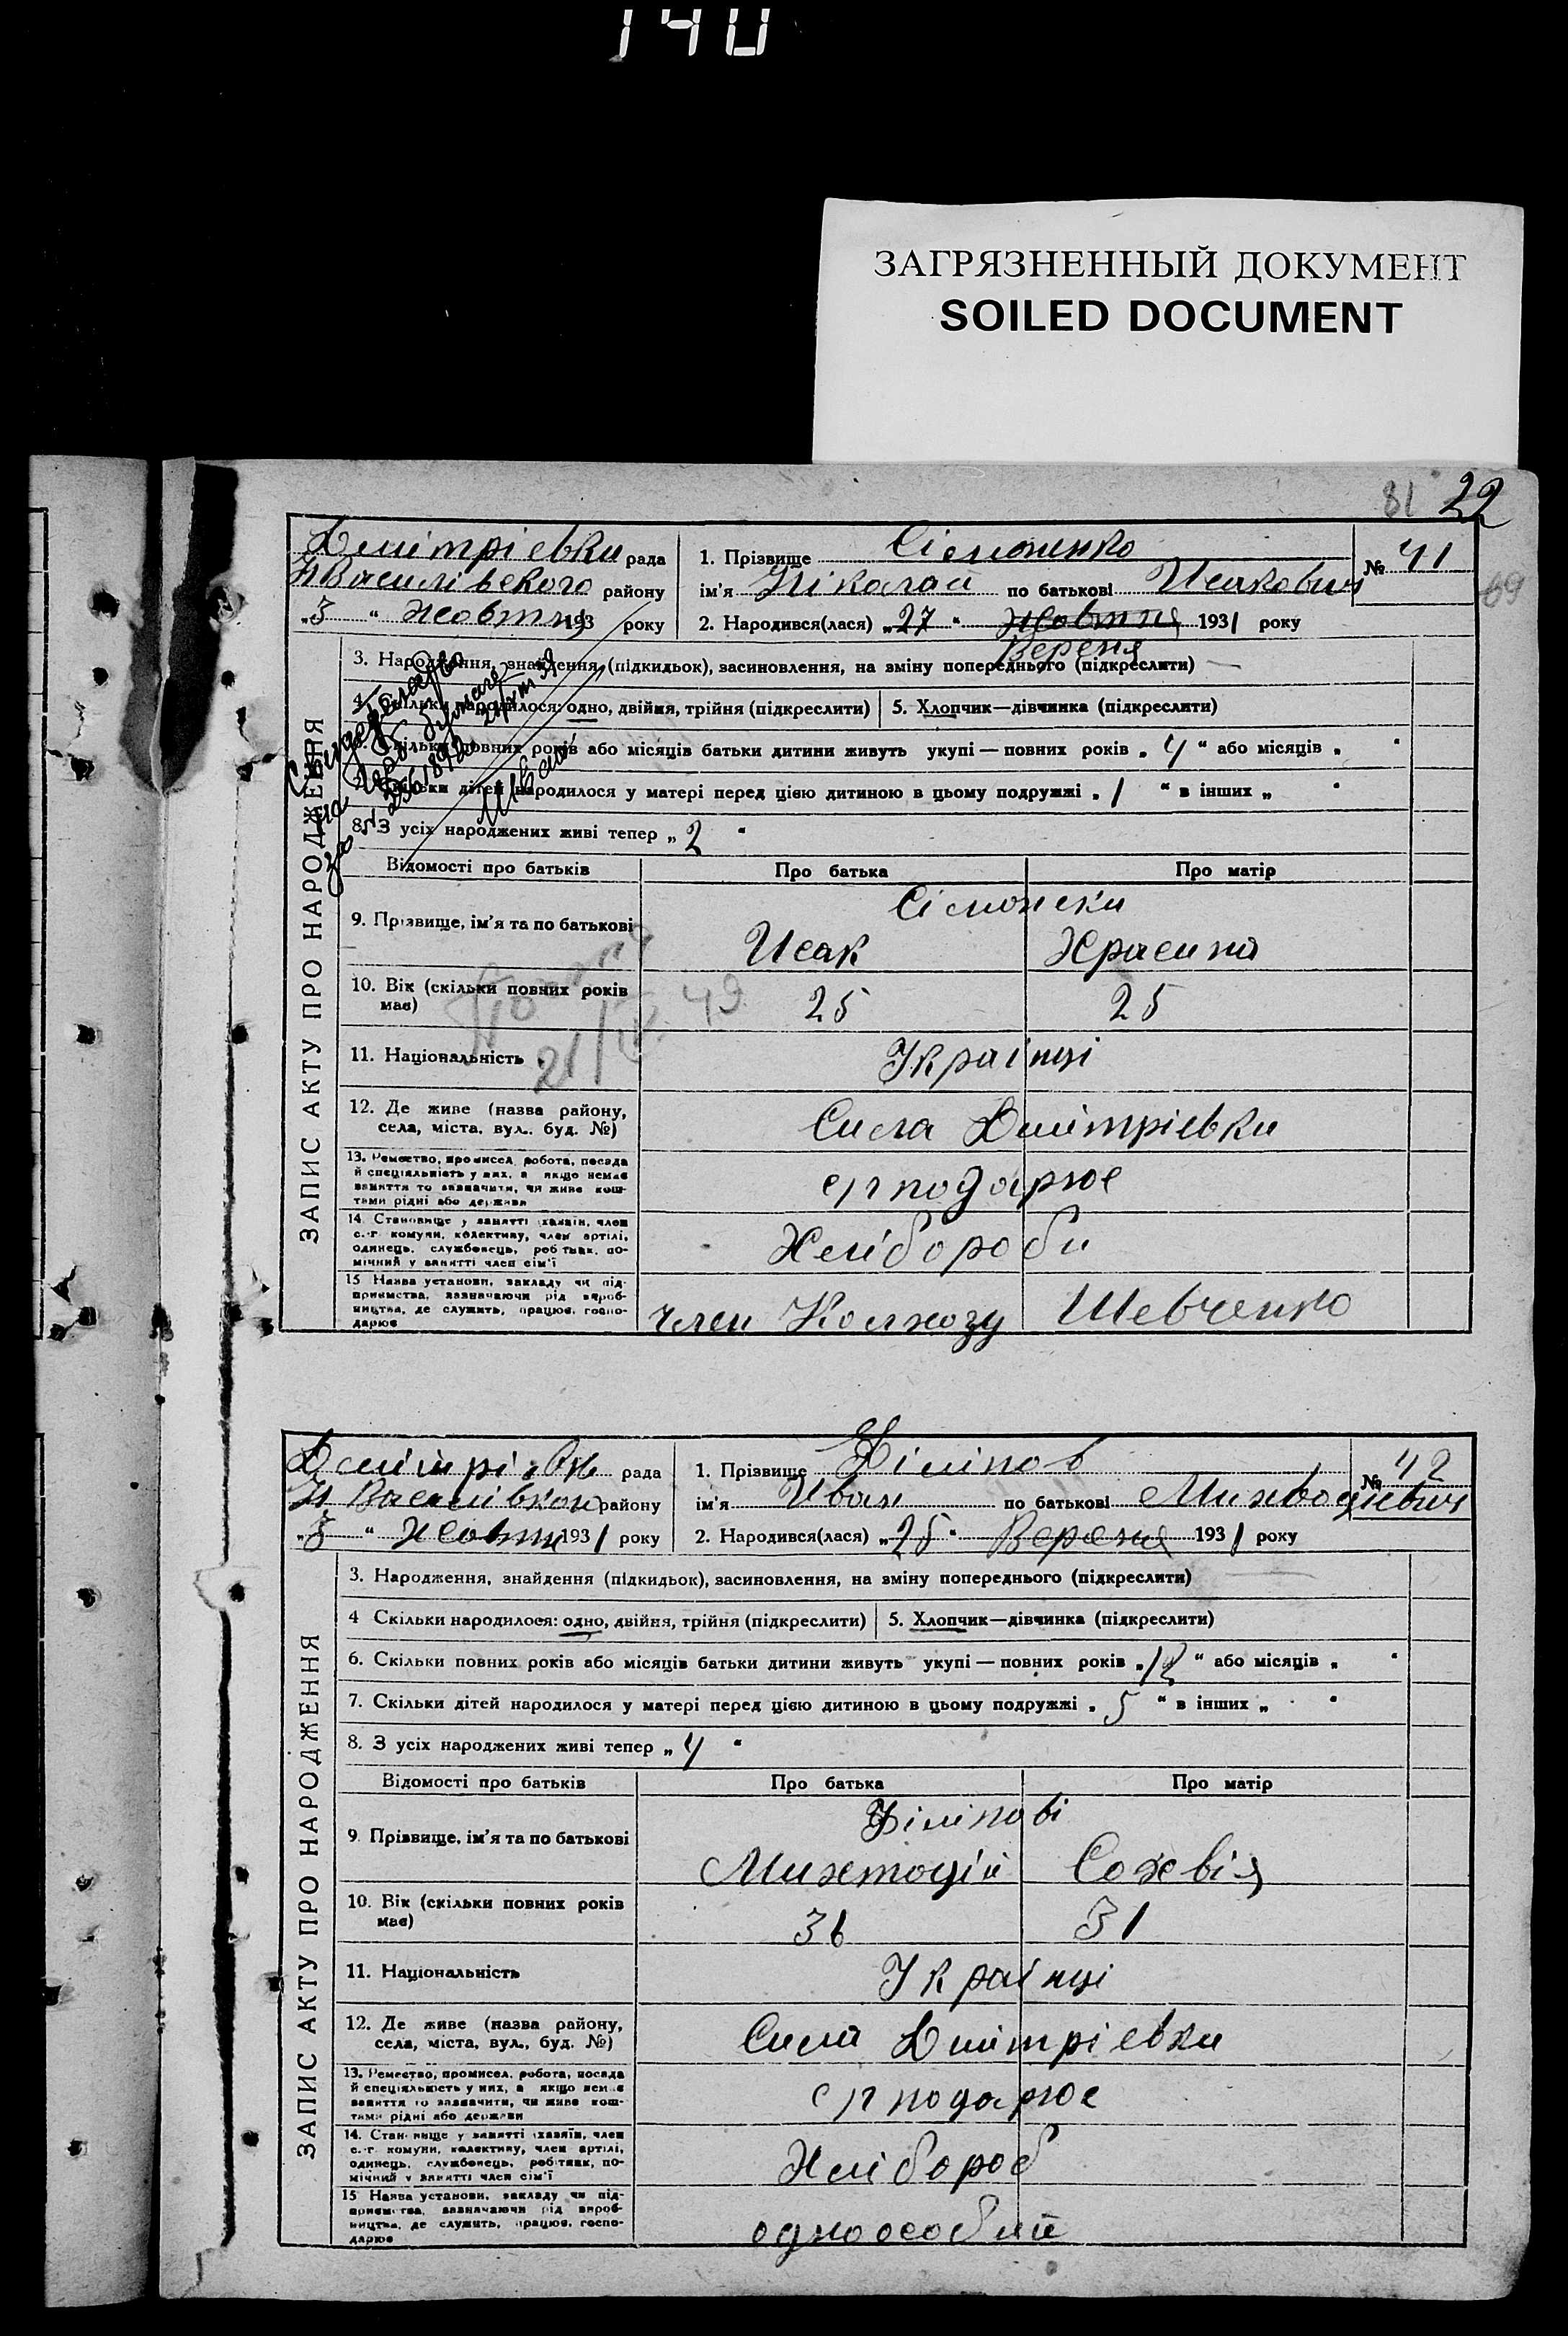 140
ЗАГРЯЗНЕННЫЙ ДОКУМЕНТ
SOILED DOCUMENT
81 22
69
ЗАПИС АКТУ ПРО НАРОДЖЕННЯ
Дмітріевки рада
Н Василівского району
„3 “ жовтня 193 року
1. Прізвище Сімоненко
ім'я Ніколай по батькові Исакович
№ 41
2. Народився(лася) „27 “ жовтня 1931 року
Вереня
3. Народження, знайдення, (підкидьок), засиновлення, на зміну попереднього (підкреслити)
4. Скільки народилося: одно, двійня, трійня (підкреслити) 5. Хлопчик—дівчинка (підкреслити)
6. Скільки повних років або місяців батьки дитини живуть укупі — повних років „ 4 “ або місяців „ “
7. Скільки дітей народилося у матері перед цією дитиною в цьому подружжі „ 1 “ в інших „ “
8. З усіх народжених живі тепер „ 2 “
Відомості про батьків Про батька Про матір
9. Прізвище, ім'я та по батькові
Сімонски
Исак
10. Вік (скільки повних років має) 25 25
21/IV 49
11. Національність Українці
12. Де живе (назва району,
села, міста, вул. буд. №) Сила Дмітріевки
13. Ремество, промисел, робота, посада
й спеціяльність у них, а якщо немає
заняття то зазначити, чи живе кош-
тами рідні або держави
14. Становище у занятті хазяїн, член
с.-г. комуни, колективу, член артілі,
одинець, службовець, робітник, по-
мічний у занятті член сім'ї
Хлібороби
15 Назва установи, закладу чи під-
приємства, зазначаючи рід вироб-
ництва, де служить, працює, госпо-
дарює
член Колхозу Шевченко
ЗАПИС АКТУ ПРО НАРОДЖЕННЯ
рада
району
„3 “ 1931 року
1. Прізвище Філіпов
ім'я Иван по батькові
№ 42
2. Народився(лася) „25 “ Вереня 1931 року
3. Народження, знайдення (підкидьок), засиновлення, на зміну попереднього (підкреслити)
4 Скільки народилося: одно, двійня, трійня (підкреслити) 5. Хлопчик—дівчинка (підкреслити)
6. Скільки повних років або місяців батьки дитини живуть укупі — повних років „ 12 “ або місяців „ “
7. Скільки дітей народилося у матері перед цією дитиною в цьому подружжі „ 5 “ в інших „ “
8. З усіх народжених живі тепер „ 4 “
Відомості про батьків Про батька Про матір
9. Прізвище, ім'я та по батькові
Філіпові
10. Вік (скільки повних років має) 36 31
11. Національність Українці
12. Де живе (назва району,
села, міста, вул., буд. №) Сила Дмітріевки
13. Ремество, промисел, робота, посада
й спеціяльність у них, а якщо немає
заняття то зазначити, чи живе кош-
тами рідні або держави
14. Становище у занятті хазяїн, член
с.-г. комуни, колективу, член артілі,
одинець, службовець, робітник, по-
мічний у занятті член сім'ї
Хлібороб
15 Назва установи, закладу чи під-
приємства, зазначаючи рід вироб-
ництва, де служить, працює, госпо-
дарює
одноособний